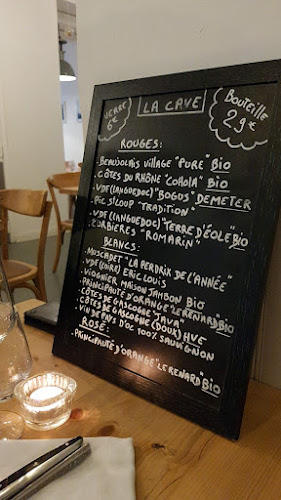 VERRE
6€
LA CAVE
Bouteille
29€
ROUGES:
• BEAUJOLAIS VILLAGE "PURE" BIO
• CÔTES DU RHÔNE "COHOLA" BIO
• VDF (LANGUEDOC) "BOGUS" DEMETER
• PIC ST LOUP "TRADITION"
• VDF (LANGUEDOC) "TERRE D'ÉOLE" BIO
• CORBIÈRES "ROMARIN"
BLANCS:
• MUSCADET "LA PERDRIX DE L'ANNÉE"
• VDF (LOIRE) ERIC LOUIS
• VIOGNIER MAISON JAMBON BIO
• PRINCIPAUTÉ D'ORANGE "LE RENARD" BIO
• CÔTES DE GASCOGNE "JAVA"
• CÔTES DE GASCOGNE (DOUX) HVE
• VIN DE PAYS D'OC 100% SAUVIGNON
ROSÉ:
• PRINCIPAUTÉ D'ORANGE "LE RENARD" BIO